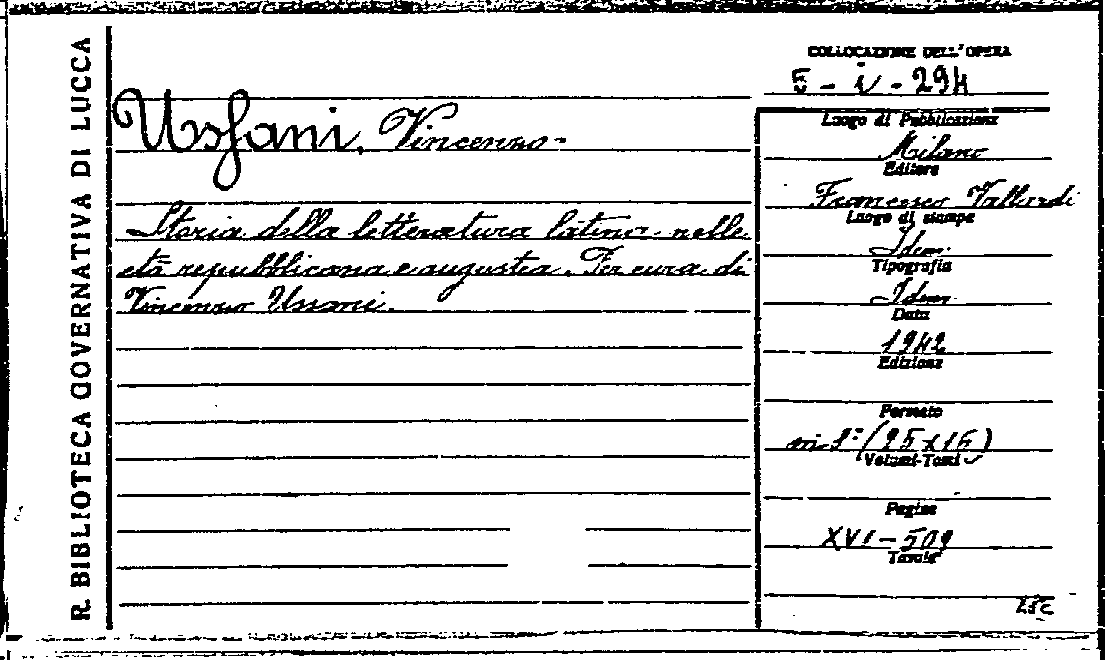 R. BIBLIOTECA GOVERNATIVA DI LUCCA
Ussani, Vincenzo-
Storia della letteratura latina nelle
età repubblicana e augustea. Per cura di
Vincenzo Ussani.
COLLOCAZIONE DELL'OPERA
E - i - 294
Luogo di Pubblicazione
Milano
Editore
Francesco Vallardi
Luogo di stampa
Idem
Tipografia
Idem
Data
1942
Edizione
Formato
in 8° (25x16)
Volumi-Tomi
Pagine
XVI-509
Tavole